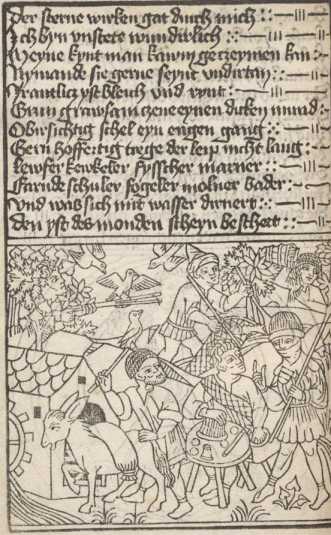 Der sterne wirken gat durch mich
Ich byn vnstete wundirlich
Meyne kynt man kawm geczeymen kan
Nymande sie gerne seynt vndirtan
Ir antlicz yst bleich vnd runt
Grun grawsam czene eynen dicken mund
Obirsichtig schel eyn engen gang
Gern hoffertig trege der leip nicht lang
Lewfer kewkeler fysscher marner
Farnde schuler fogeler molner bader
Vnd was sich mit wasser dirnert
Den yst des monden scheyn beschert